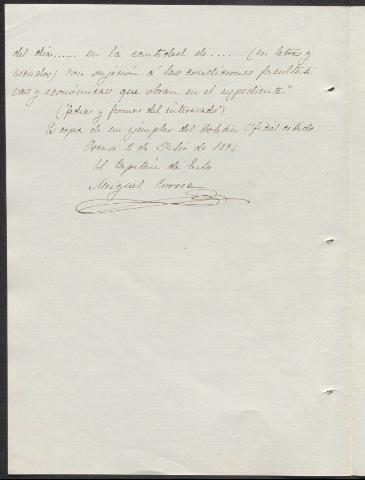 del día...... en la cantidad de...... (en letras y
escudos) con sujeción á las condiciones facultati
vas y económicas que obran en el expediente."
("fecha y firma del interesado")
Es copia de un ejemplar del Boletín Oficial citado
de Julio de 1894
El Capitán de
Miguel Correa